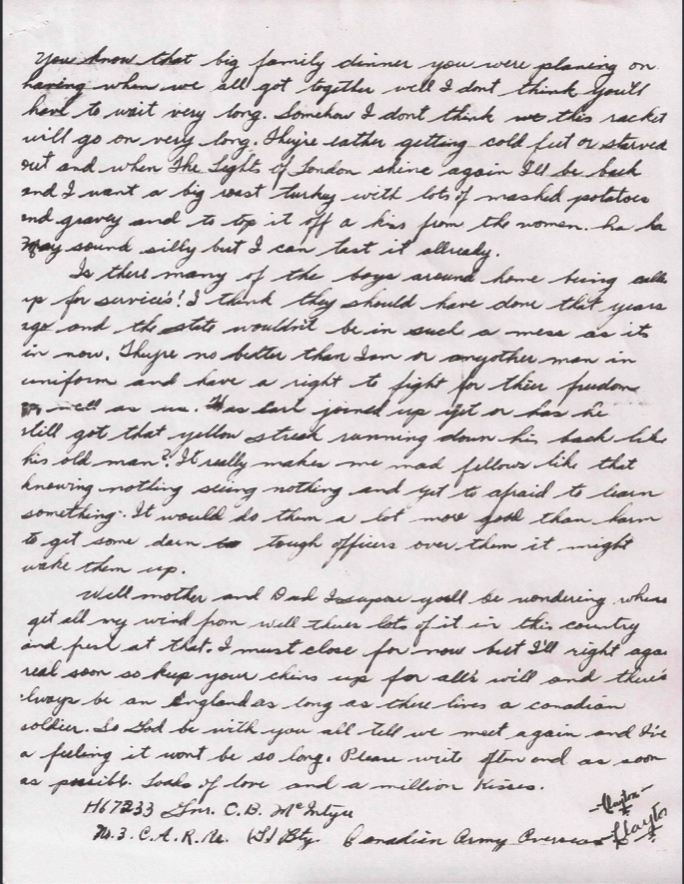 You know that big family dinner you were planing on
having when we all got together well I dont think you'll
have to wait very long. Somehow I dont think this racket
will go on very long. They're eather getting cold feet or starved
out and when The Lights of London shine again I'll be back
and I want a big roast turkey with lots of mashed potatoes
and gravey and to top it off a kiss from the women. ha ha
May sound silly but I can tast it allready.
Is there many of the boys around home being
up for services! I think they should have done that years
ago and the state wouldn't be in such a mess as its
in now. They're no better than I am or anyother man in
uniform and have a right to fight for their freedom
as well as us. Has joined up yet or has he
still got that yellow streak running down his back like
his old man? It really makes me mad fellows like that
knowing nothing seeing nothing and yet to afraid to learn
something. It would do them a lot more good than harm
to get some darn tough officers over them it might
wake them up.
Well mother and Dad I supose you'll be wondering where
get all my wind from well theres lots of it in this country
and fresh at that. I must close for now but I'll right aga
real soon so keep your chins up for all's will and there's
always be an England as long as there lives a canadian
soldier. So God be with you all tell we meet again and I've
a feeling it wont be so long. Please write often and as soon
as possible. Loads of love and a million Kisses.
H67233 Gnr. C.B. McIntyre
No. 3. C.A.R.U. Bty. Canadian Army Overseas
-Clayton-
Clayton